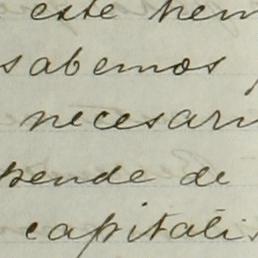 este hem
sabemos
necesari
pende de
capitalis